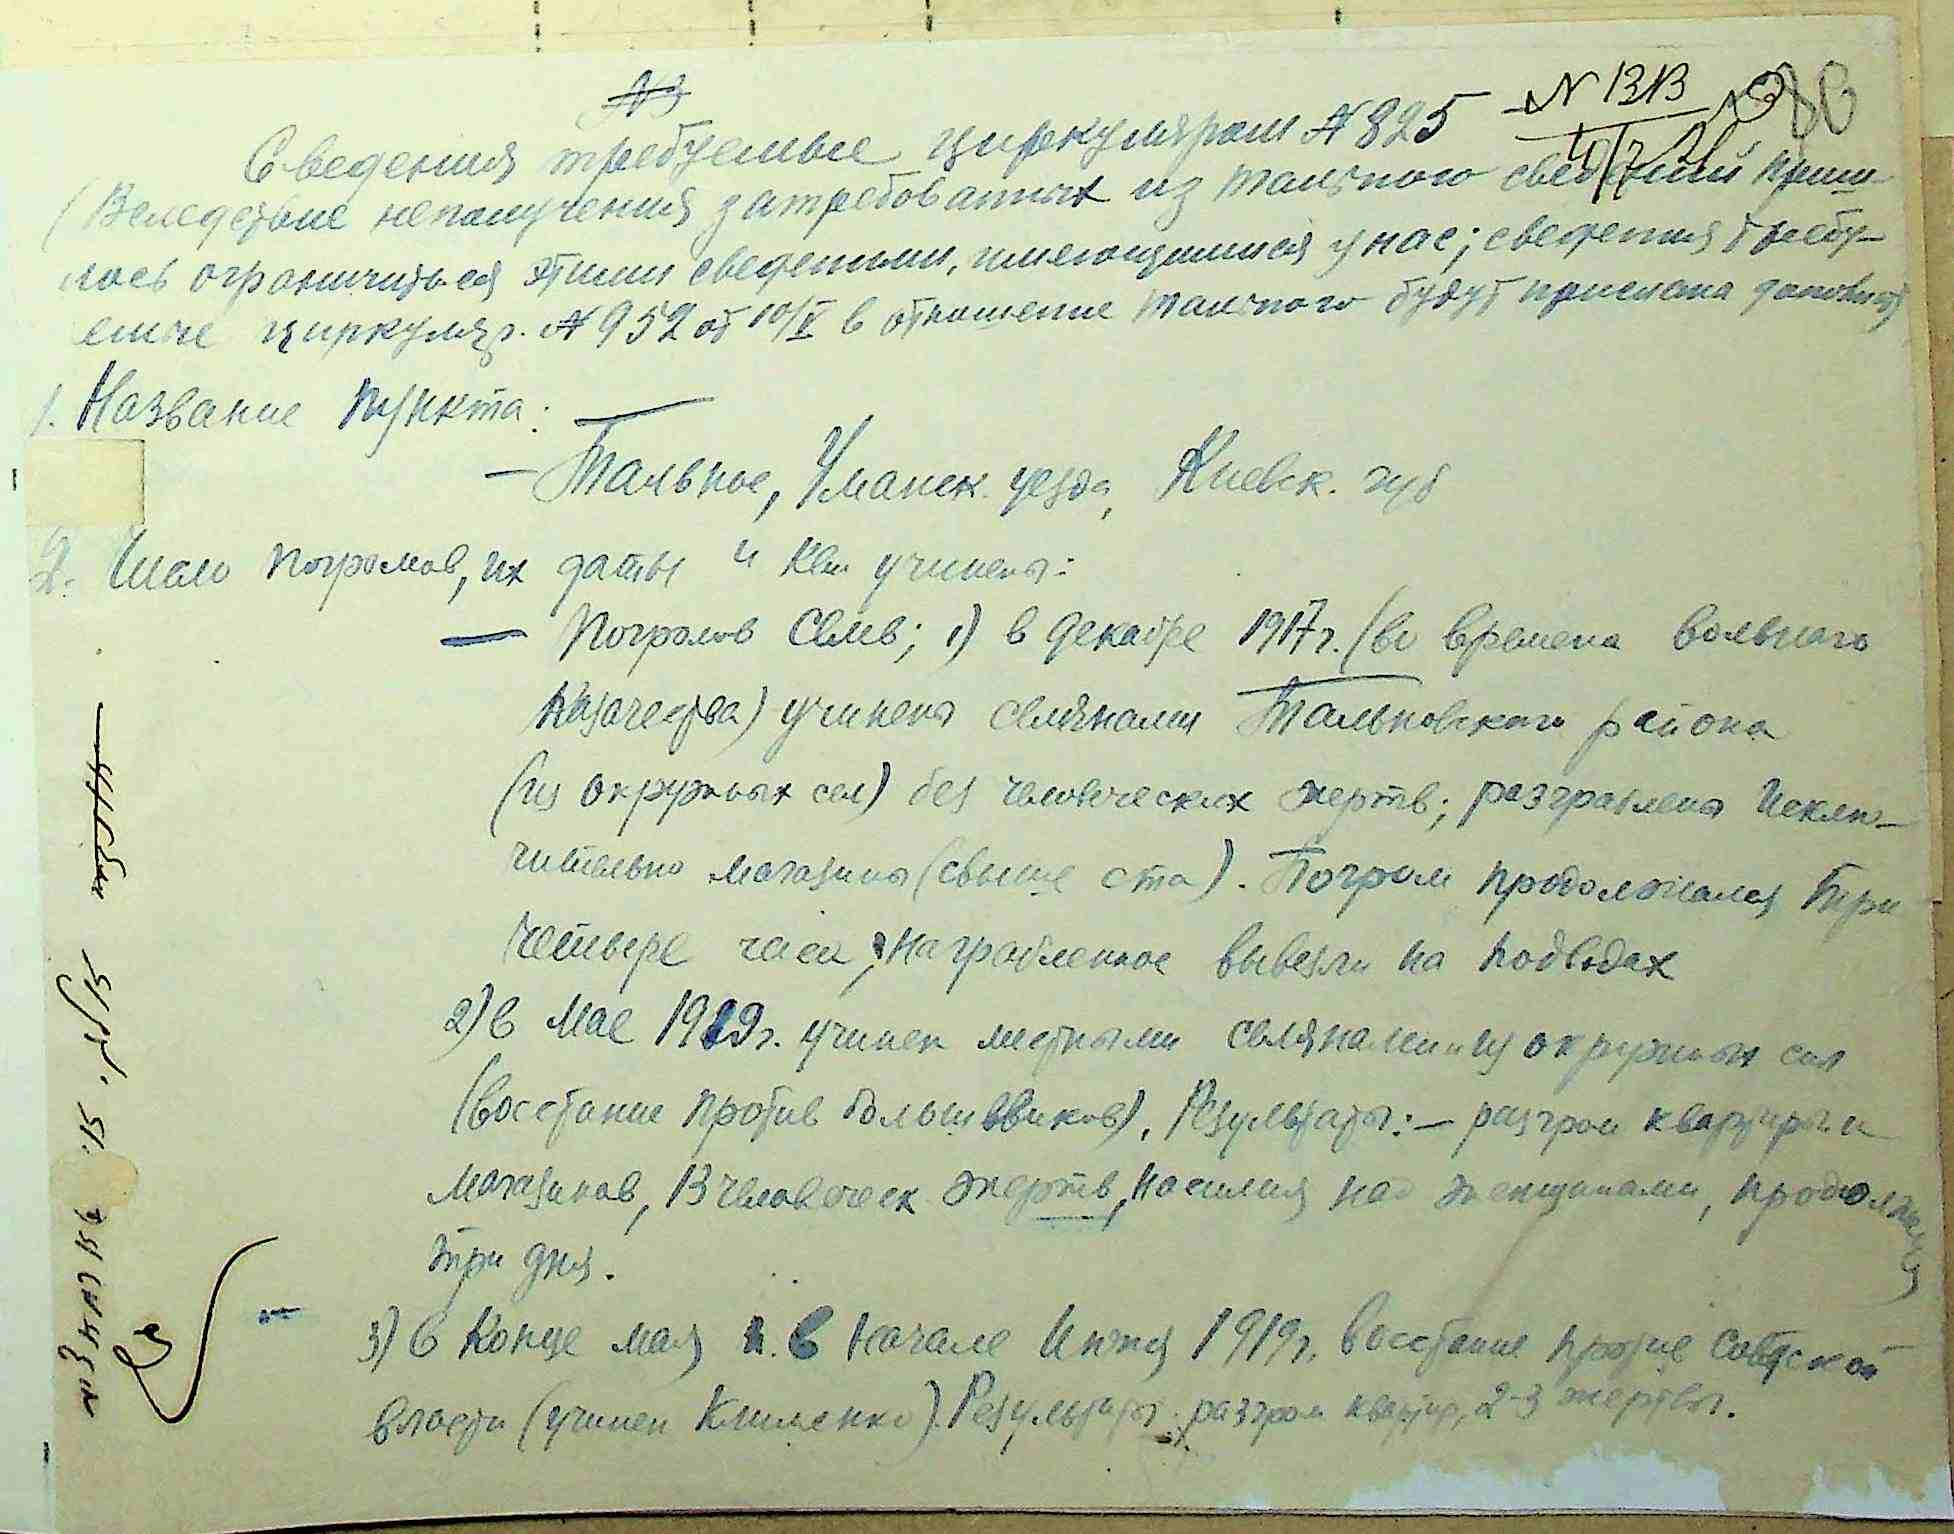 №3
Сведения требуемые циркуляром № 825
(Вследствие неполучения затребованных из Тального сведений приш-
лось ограничиться этими сведениями, имеющимися у нас; сведения требу-
емые циркуляр. № 952 от 10/V в отношение Тального будут присланы
1. Название пункта:
— Тальное, Уманск. уезда, Киевск. губ
2. Число погромов, их даты и кем учинены:
— Погромов семь; 1) в декабре 1917г. (во времена вольного
казачества) учинены селянами Тальновского района
(из окружных сел) без человеческих жертв; разграблены исклю-
чительно магазины (свыше ста). Погром продолжался три
четыре часа, награбленное вывезли на подводах
2) в мае 1919г. учинен местными селянами и из окружных сел
(восстание против большевиков). Результаты: — разгром квартир и
магазинов, 13 человеческ. жертв, насилия над женщинами, продолжался
три дня.
3) в конце мая и в начале июня 1919г. восстание против советской
власти (учинен Клименко). Результаты: разгром квартир, 2-3 жертвы.